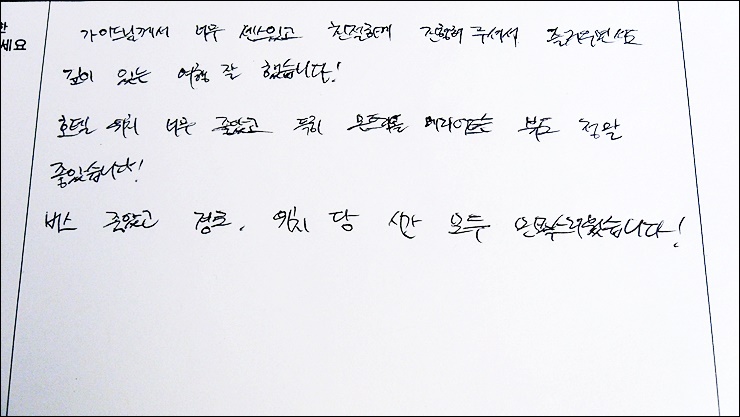 한
세요
가이드님께서 너무 센스있고 친절하게 진행해 주셔서 즐거우면서도
깊이 있는 여행 잘 했습니다!
호텔 위치 너무 좋았고 특히 몬트리올 메리어트는 뷰도 정말
좋았습니다!
버스 좋았고 경로, 위치 당 시간 모두 만족스러웠습니다!